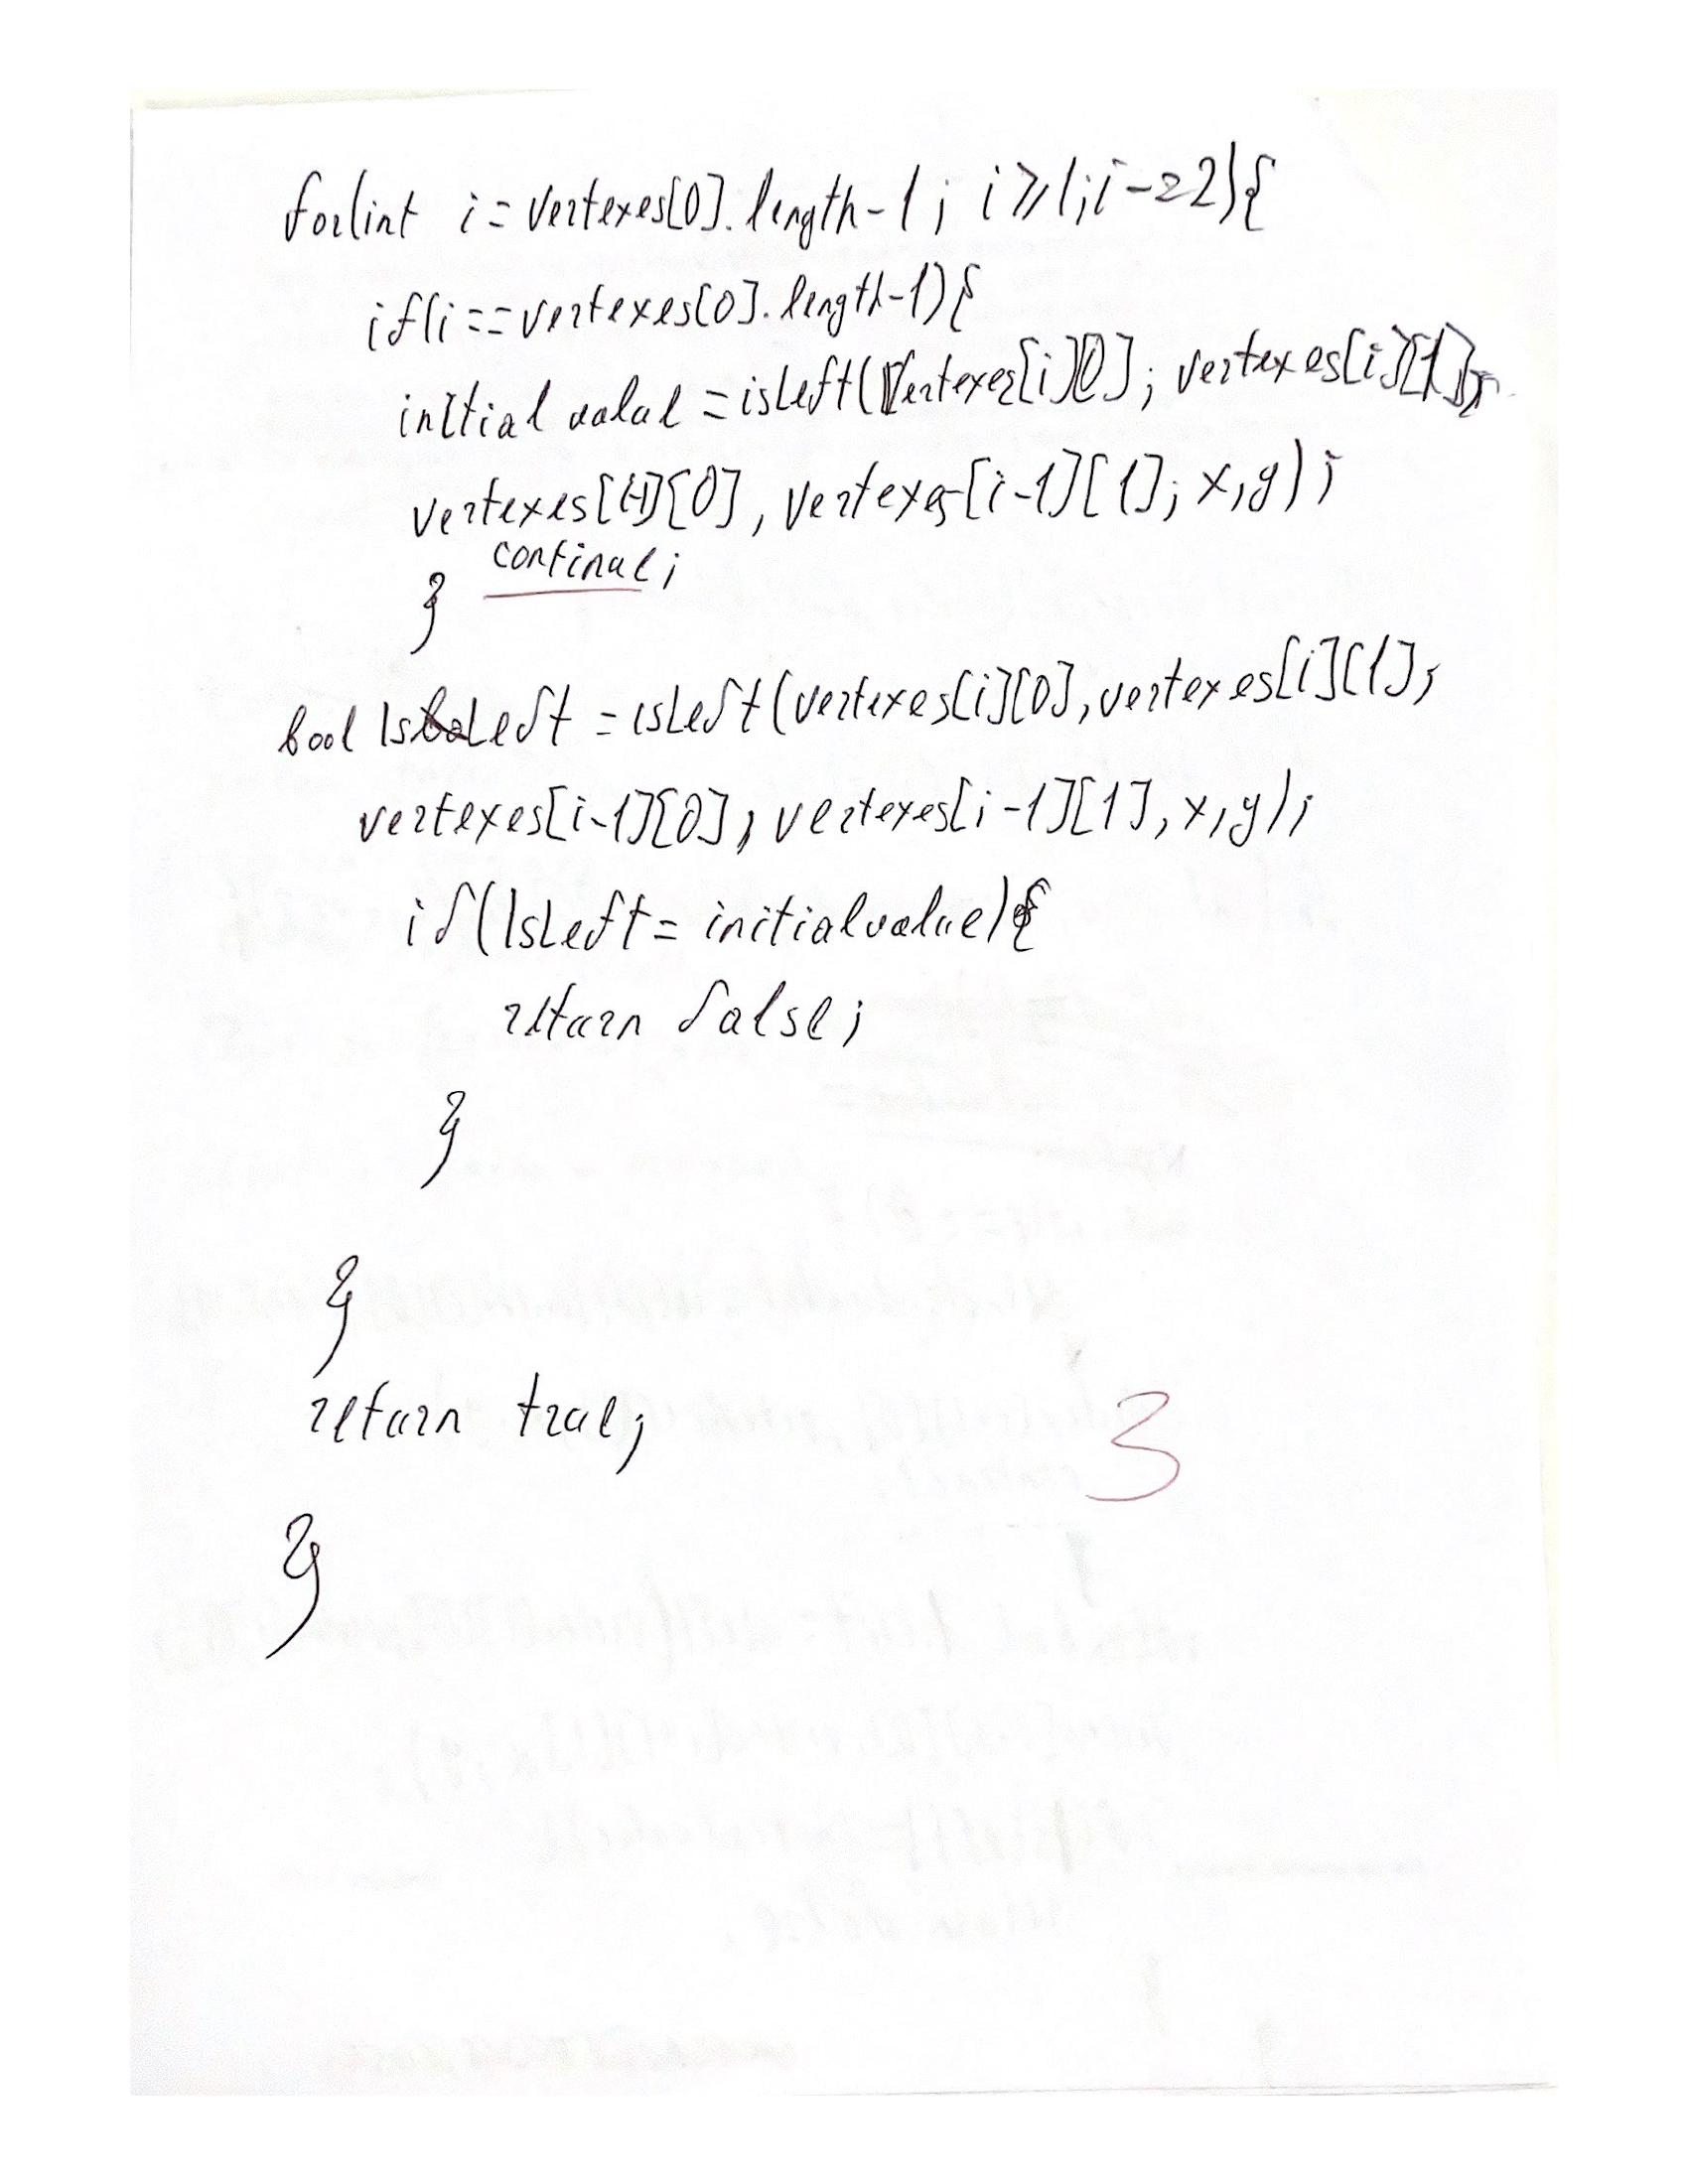 for(int i = vertexes[0].length-1; i≥1; i-=2){
if(i==vertexes[0].length-1){
initial value = isLeft(vertexes[i][0]; vertexes[i][1],
vertexes[i-1][0], vertexes[i-1][1]; x,y);
continue;
}
bool IsLeft = isLeft(vertexes[i][0], vertexes[i][1],
vertexes[i-1][0], vertexes[i-1][1], x,y);
if(IsLeft = initialvalue){
return false;
}
}
return true;
3
}